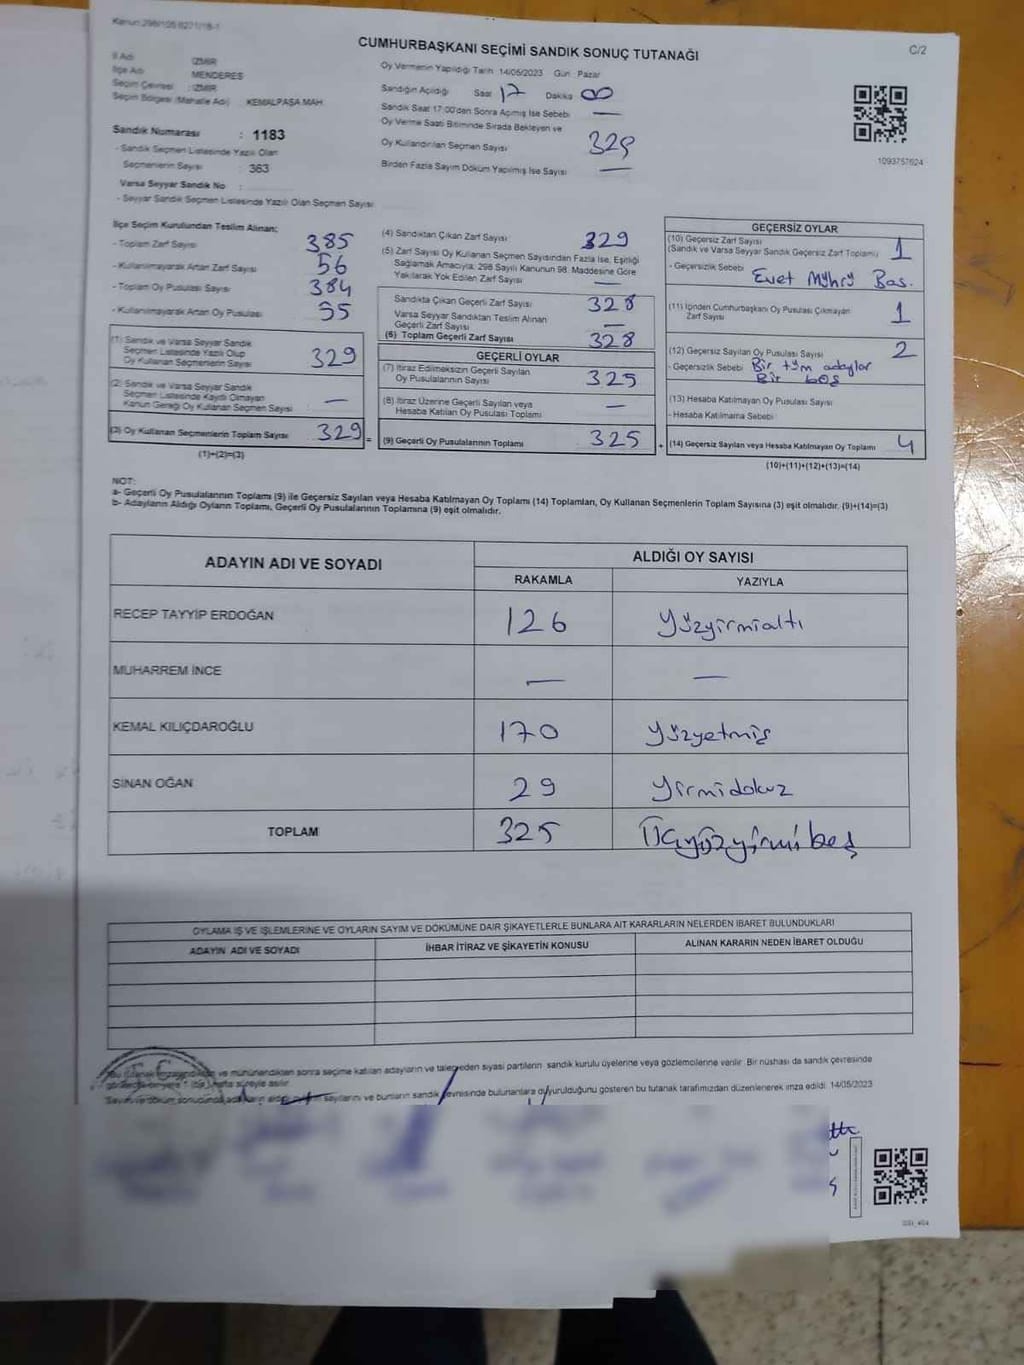 Kanun:298/105 6271/18-1
CUMHURBAŞKANI SEÇİMİ SANDIK SONUÇ TUTANAĞI
C/2
İl Adı : İZMİR
İlçe Adı : MENDERES
Seçim Çevresi : İZMİR
Seçim Bölgesi (Mahalle Adı) : KEMALPAŞA MAH.
Sandık Numarası : 1183
- Sandık Seçmen Listesinde Yazılı Olan
Seçmenlerin Sayısı : 363
Varsa Seyyar Sandık No :
- Seyyar Sandık Seçmen Listesinde Yazılı Olan Seçmen Sayısı
Oy Vermenin Yapıldığı Tarih 14/05/2023 Gün : Pazar
Sandığın Açıldığı Saat 17 Dakika 00
Sandık Saat 17:00'den Sonra Açılmış İse Sebebi —
Oy Verme Saati Bitiminde Sırada Bekleyen ve
Oy Kullandırılan Seçmen Sayısı 329
Birden Fazla Sayım Döküm Yapılmış İse Sayısı —
1093757624
İlçe Seçim Kurulundan Teslim Alınan;
- Toplam Zarf Sayısı 385
- Kullanılmayarak Artan Zarf Sayısı 56
- Toplam Oy Pusulası Sayısı 384
- Kullanılmayarak Artan Oy Pusulası 55
(1) Sandık ve Varsa Seyyar Sandık
Seçmen Listesinde Yazılı Olup
Oy Kullanan Seçmenlerin Sayısı 329
(2) Sandık ve Varsa Seyyar Sandık
Seçmen Listesinde Kaydı Olmayan
Kanun Gereği Oy Kullanan Seçmen Sayısı —
(3) Oy Kullanan Seçmenlerin Toplam Sayısı 329 =
(1)+(2)=(3)
(4) Sandıktan Çıkan Zarf Sayısı 329
(5) Zarf Sayısı Oy Kullanan Seçmen Sayısından Fazla İse, Eşitliği
Sağlamak Amacıyla; 298 Sayılı Kanunun 98. Maddesine Göre
Yakılarak Yok Edilen Zarf Sayısı —
Sandıkta Çıkan Geçerli Zarf Sayısı 328
Varsa Seyyar Sandıktan Teslim Alınan
Geçerli Zarf Sayısı —
(6) Toplam Geçerli Zarf Sayısı 328
GEÇERLİ OYLAR
(7) İtiraz Edilmeksizin Geçerli Sayılan
Oy Pusulalarının Sayısı 325
(8) İtiraz Üzerine Geçerli Sayılan veya
Hesaba Katılan Oy Pusulası Toplamı —
(9) Geçerli Oy Pusulalarının Toplamı 325 +
GEÇERSİZ OYLAR
(10) Geçersiz Zarf Sayısı
(Sandık ve Varsa Seyyar Sandık Geçersiz Zarf Toplamı) 1
- Geçersizlik Sebebi Evet Mührü Bas.
(11) İçinden Cumhurbaşkanı Oy Pusulası Çıkmayan
Zarf Sayısı 1
(12) Geçersiz Sayılan Oy Pusulası Sayısı 2
- Geçersizlik Sebebi Bir tüm adaylar
Bir boş
(13) Hesaba Katılmayan Oy Pusulası Sayısı
- Hesaba Katılmama Sebebi
(14) Geçersiz Sayılan veya Hesaba Katılmayan Oy Toplamı 4
(10)+(11)+(12)+(13)=(14)
NOT:
a- Geçerli Oy Pusulalarının Toplamı (9) ile Geçersiz Sayılan veya Hesaba Katılmayan Oy Toplamı (14) Toplamları, Oy Kullanan Seçmenlerin Toplam Sayısına (3) eşit olmalıdır. (9)+(14)=(3)
b- Adayların Aldığı Oyların Toplamı, Geçerli Oy Pusulalarının Toplamına (9) eşit olmalıdır.
ADAYIN ADI VE SOYADI
ALDIĞI OY SAYISI
RAKAMLA YAZIYLA
RECEP TAYYİP ERDOĞAN 126 yüzyirmialtı
MUHARREM İNCE — —
KEMAL KILIÇDAROĞLU 170 yüzyetmiş
SİNAN OĞAN 29 yirmidokuz
TOPLAM 325 Üçyüzyirmibeş
OYLAMA İŞ VE İŞLEMLERİNE VE OYLARIN SAYIM VE DÖKÜMÜNE DAİR ŞİKAYETLERLE BUNLARA AİT KARARLARIN NELERDEN İBARET BULUNDUKLARI
ADAYIN ADI VE SOYADI İHBAR İTİRAZ VE ŞİKAYETİN KONUSU ALINAN KARARIN NEDEN İBARET OLDUĞU
ve mühürlendikten sonra seçime katılan adayların ve talep eden siyasi partilerin sandık kurulu üyelerine veya gözlemcilerine verilir. Bir nüshası da sandık çevresinde
süreyle asılır.
Sayım ve döküm sonucunda adayların aldığı oyların sayılarını ve bunların sandık çevresinde bulunanlara duyurulduğunu gösteren bu tutanak tarafımızdan düzenlenerek imza edildi. 14/05/2023